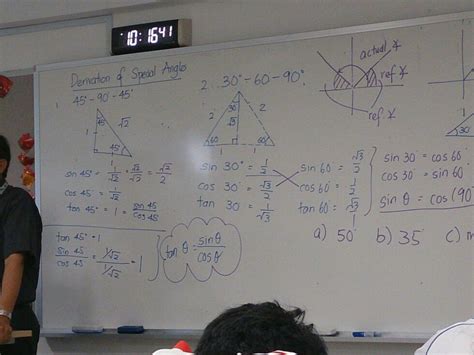 10:1641
Derivation of Special Angles
1. 45°-90°-45°
45°
1
√2
45°
1
sin 45° = 1/√2 · √2/√2 = √2/2
cos 45° = 1/√2
tan 45° = 1 = sin 45/cos 45
tan 45° = 1
sin 45/cos 45 = 1/√2 / 1/√2 = 1
tan θ = sinθ/cosθ
2. 30°-60-90°
2
30
2
√3
60
60
1
1
sin 30° = 1/2
cos 30° = √3/2
tan 30° = 1/√3
sin 60° = √3/2
cos 60° = 1/2
tan 60° = √3/1
actual ∡
ref ∡
ref ∡
sin 30° = cos 60°
cos 30° = sin 60°
sin θ = cos (90°
a) 50°
b) 35°
c)